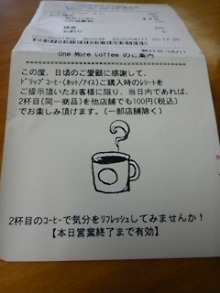 One More Coffee のご案内
この度、日頃のご愛顧に感謝して、
ドリップコーヒー(ホット/アイス)ご購入時のレシートを
ご提示頂いたお客様に限り、当日内であれば、
2杯目(同一商品)を他店舗でも100円(税込)
でお楽しみ頂けます。(一部店舗除く)
2杯目のコーヒーで気分をリフレッシュしてみませんか!
【本日営業終了まで有効】